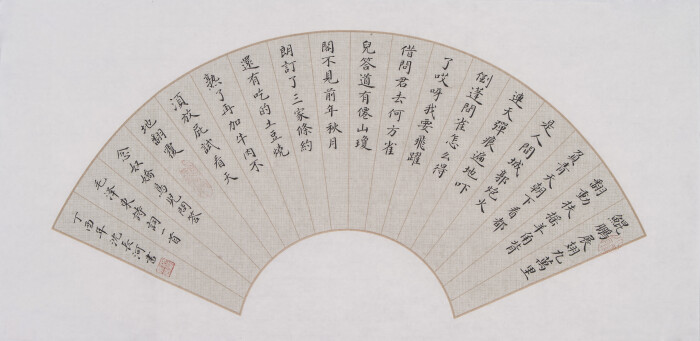 鯤鵬展翅九萬里
翻動扶摇羊角背
負青天朝下看都
是人間城郭炮火
連天彈痕遍地吓
倒蓬間雀怎么得
了哎呀我要飛躍
借問君去何方雀
兒答道有僊山瓊
閣不見前年秋月
朗訂了三家條約
還有吃的土豆燒
熟了再加牛肉不
須放屁試看天
地翻覆
念奴嬌鳥兒問答
毛泽東詩詞一首
丁酉年沈長河書